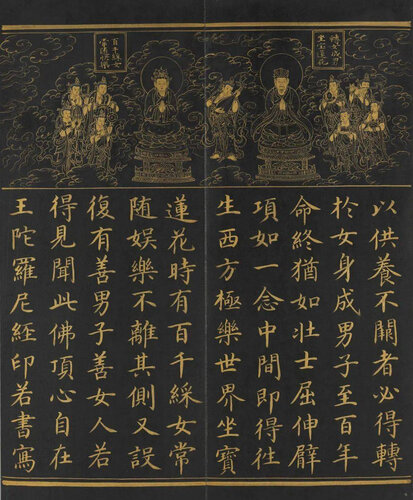 轉女成男
坐寶蓮花
百千綵女
以供養不闕者必得轉
扵女身成男子至百年
命終猶如壯士屈伸臂
項如一念中間即得往
生西方極樂世界坐寶
蓮花時有百千綵女常
随娛樂不離其側又設
復有善男子善女人若
得見聞此佛頂心自在
王陀羅尼經印若書寫